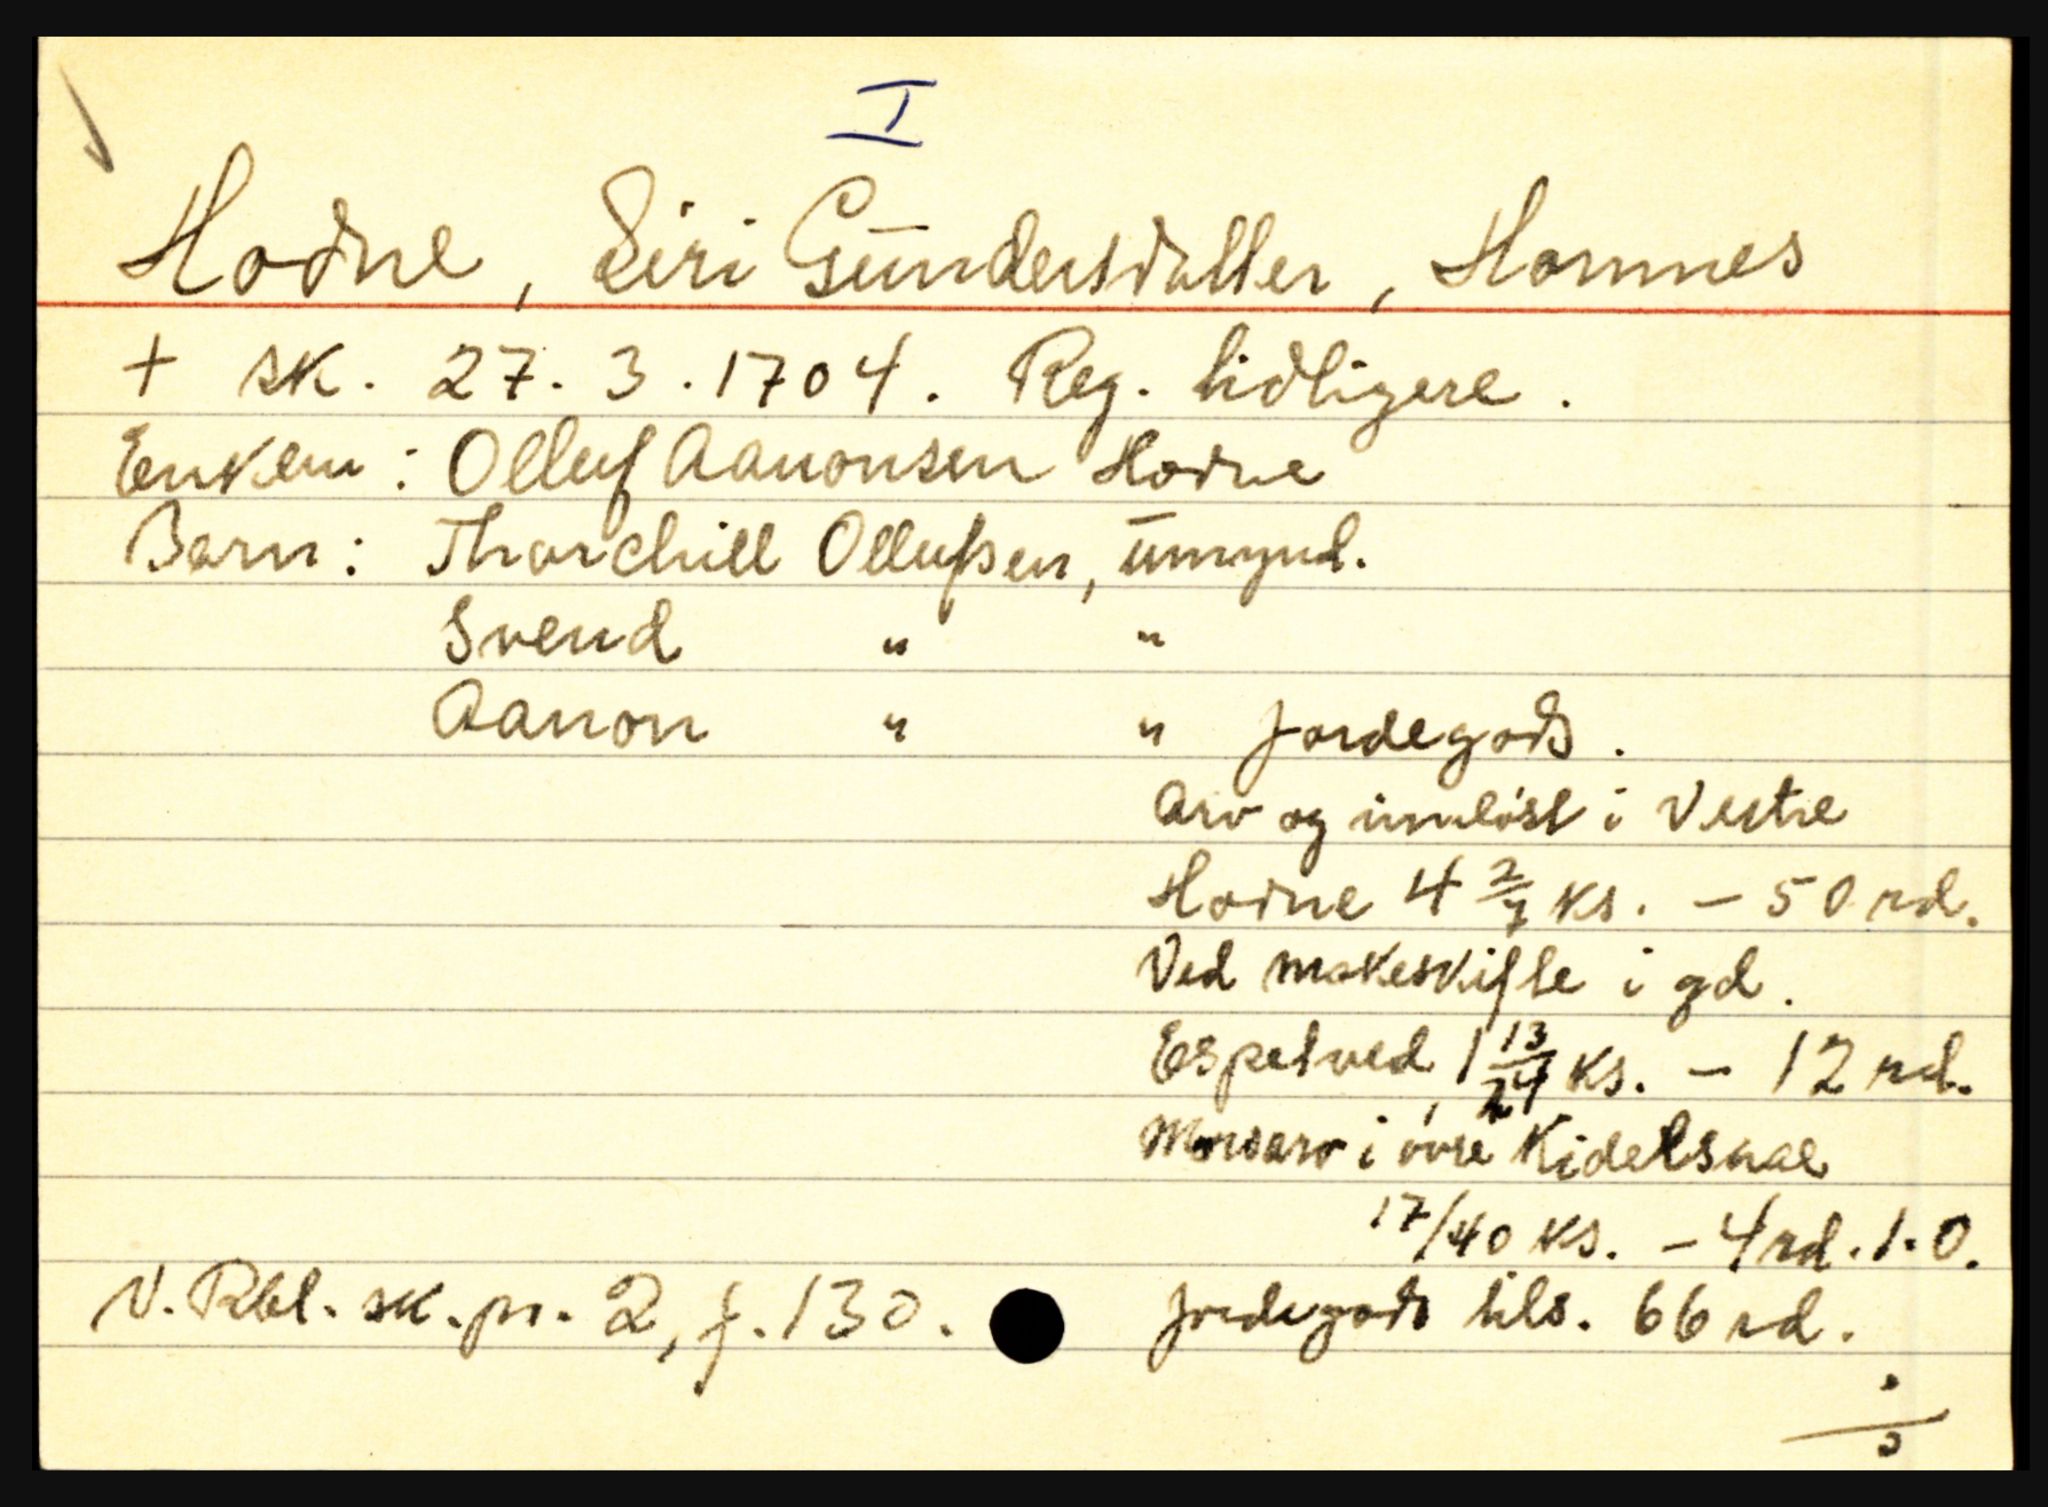 I
Hodne, Siri Gundersdatter, Homnes
+ sk. 27. 3. 1704. Reg. tidligere.
Enkem: Olluf Aanonsen Hodne
Barn: Thorchill Ollufsen, umynd.
Svend " "
Aanon " " Jordegods.
Arv og innløst i Vestre
Hodne 4 2/7 ks. - 50 rd.
Ved makeskifte i gd.
Espetved, 1 13/24 ks. - 12 rd.
Morsarv i øvre Kidelsaae
17/40 ks. - 4 rd. 1. 0.
Jordegods tils. 66 rd.
N. Rbl. sk. pr. 2, f. 130.